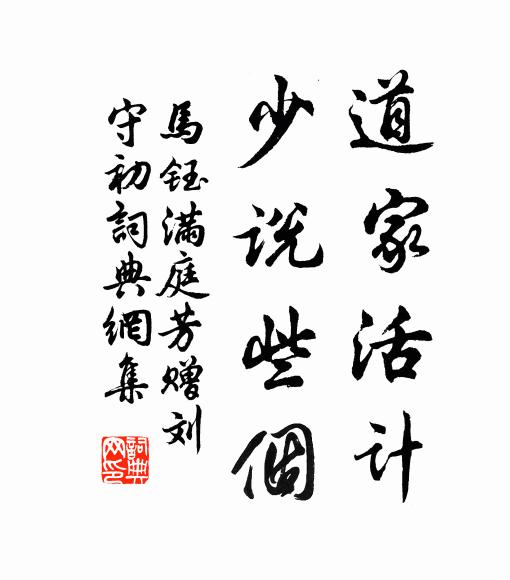 道家活计
少说些個
馬钰满庭芳赠刘
守初詞典網集
詞典网印